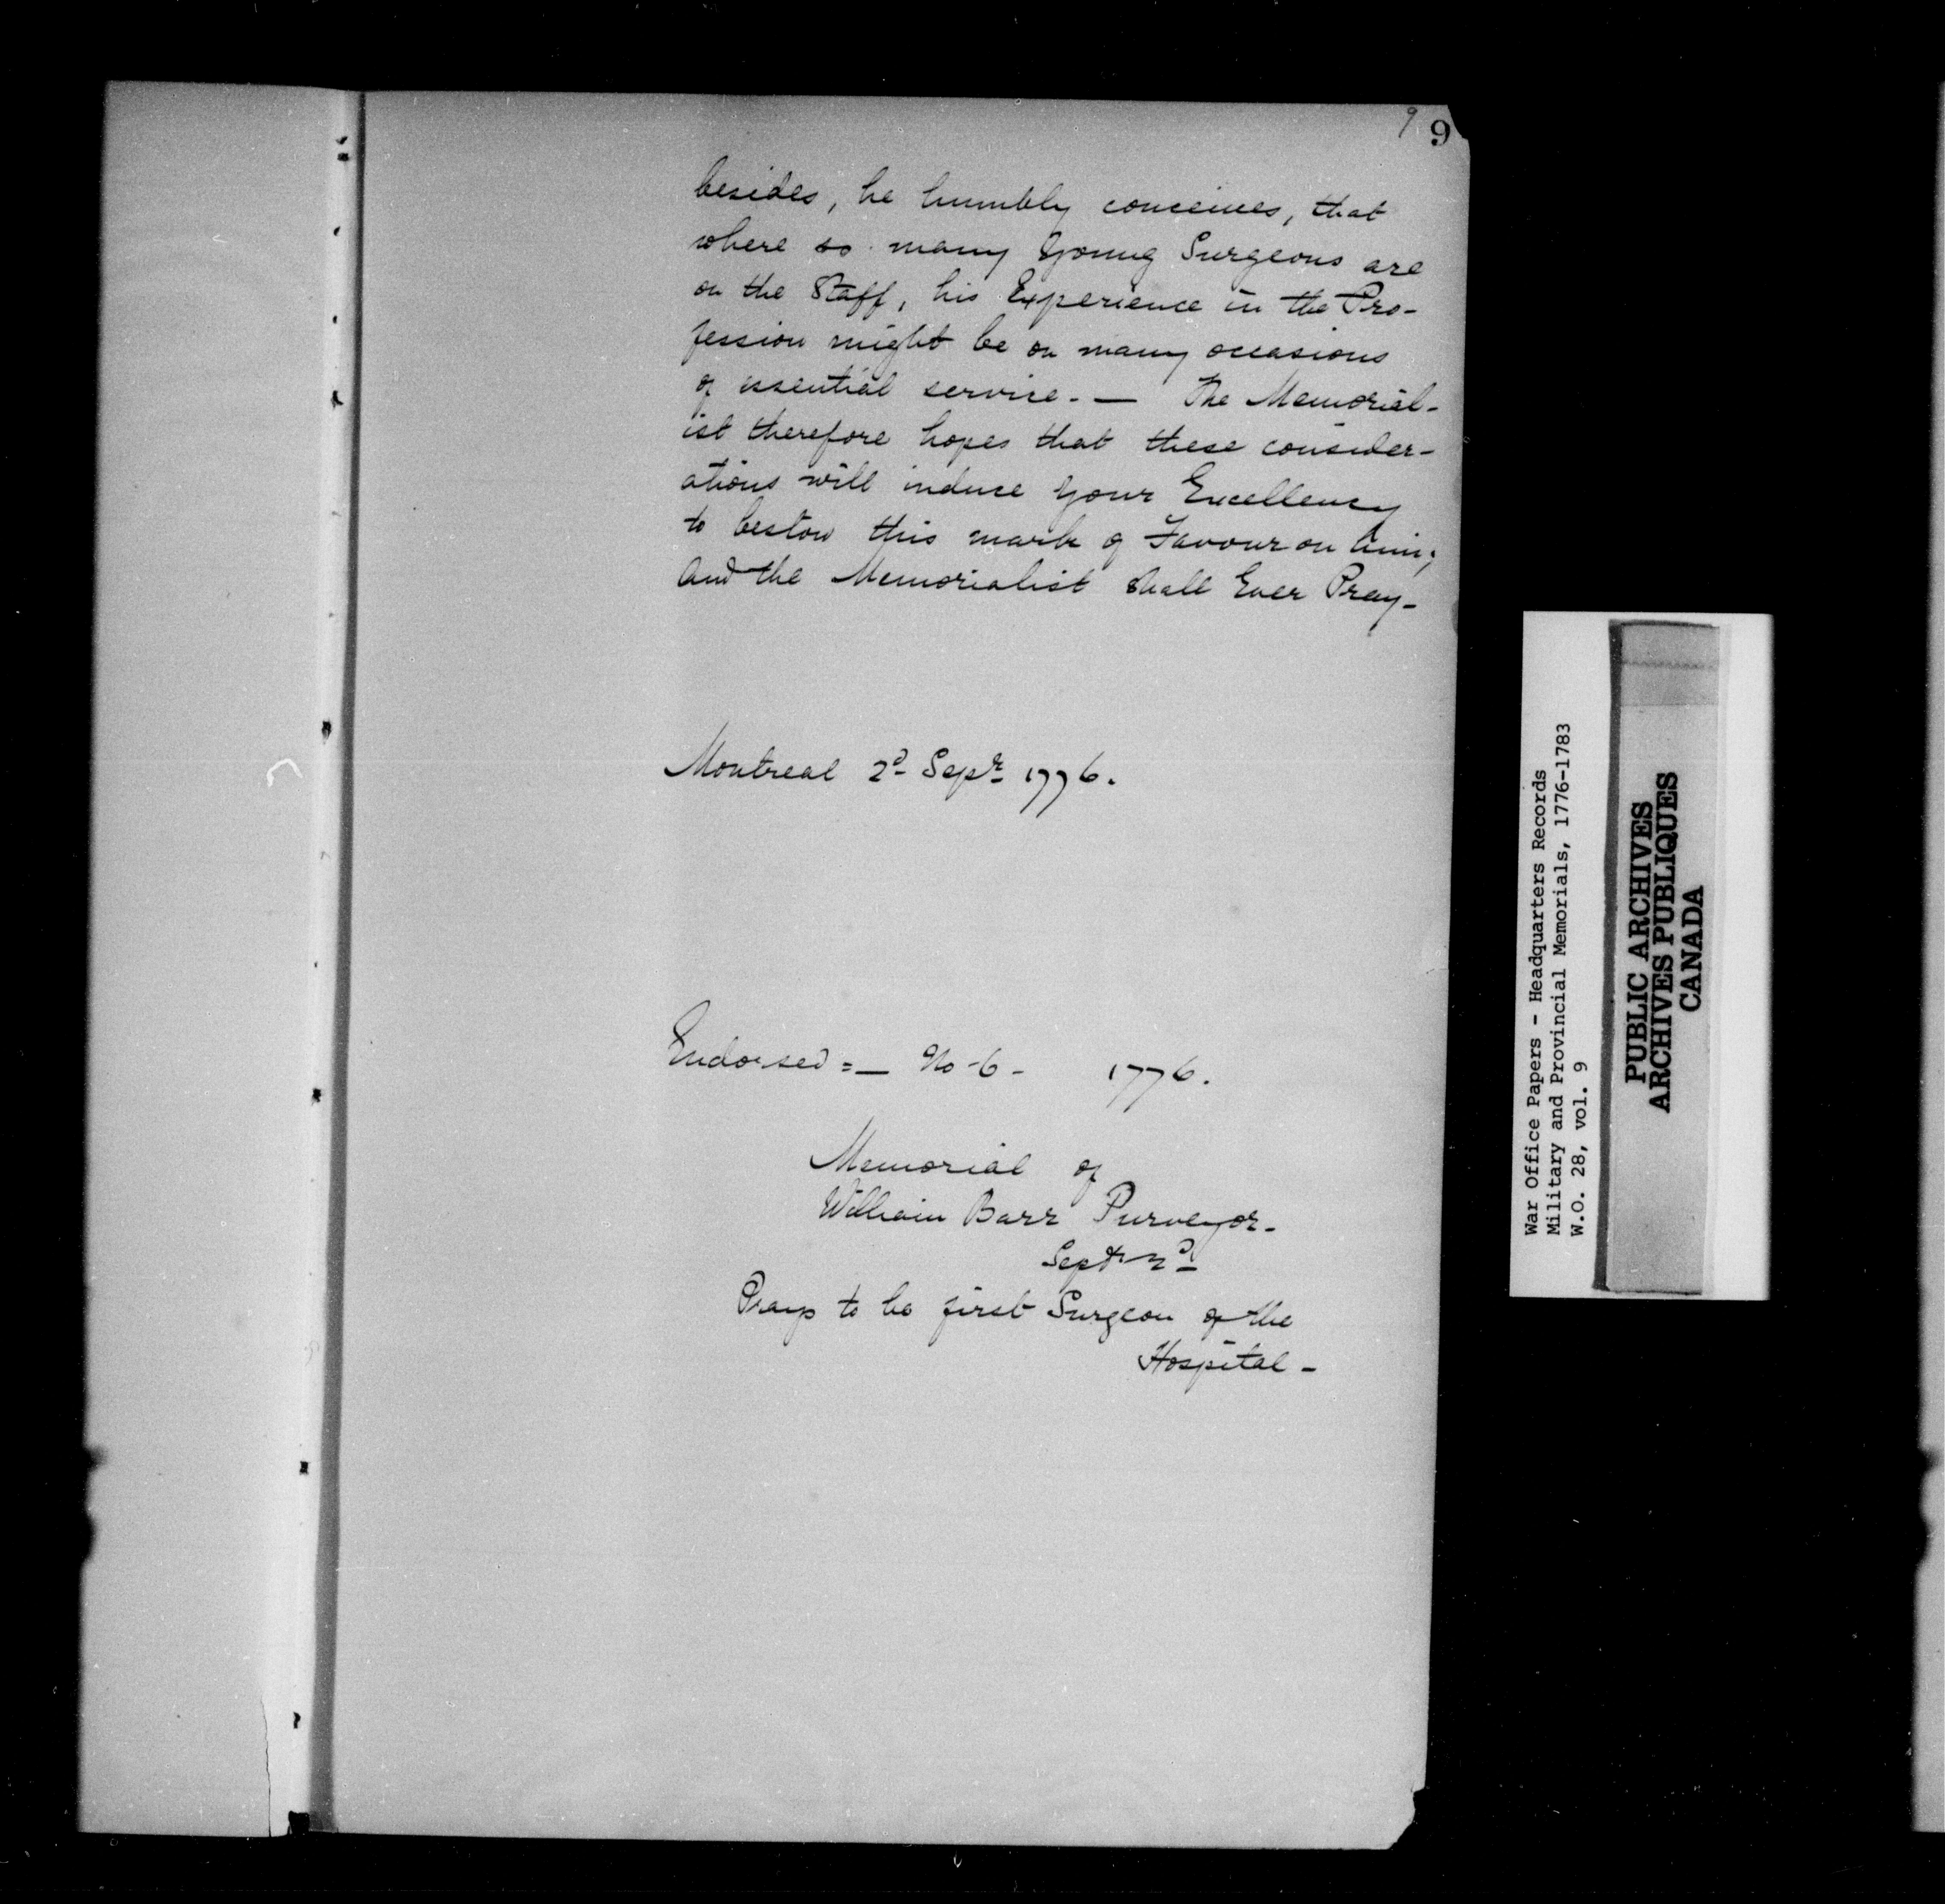 9 9
besides, he humbly conceives, that
where so many Young Surgeons are
on the Staff, his Experience in the Pro-
fession might be on many occasions
of essential service. — The Memorial-
ist therefore hopes that these consider-
ations will induce Your Excellency
to bestow this mark of Favour on him;
And the Memorialist shall Ever Pray-
Montreal 2d Sepr 1776.
Endorsed =— No-6- 1776.
Memorial of
William Barr Purveyor-
Septr 2d
Prays to be first Surgeon of the
Hospital-
War Office Papers - Headquarters Records
Military and Provincial Memorials, 1776-1783
W.O. 28, vol. 9
PUBLIC ARCHIVES
ARCHIVES PUBLIQUES
CANADA